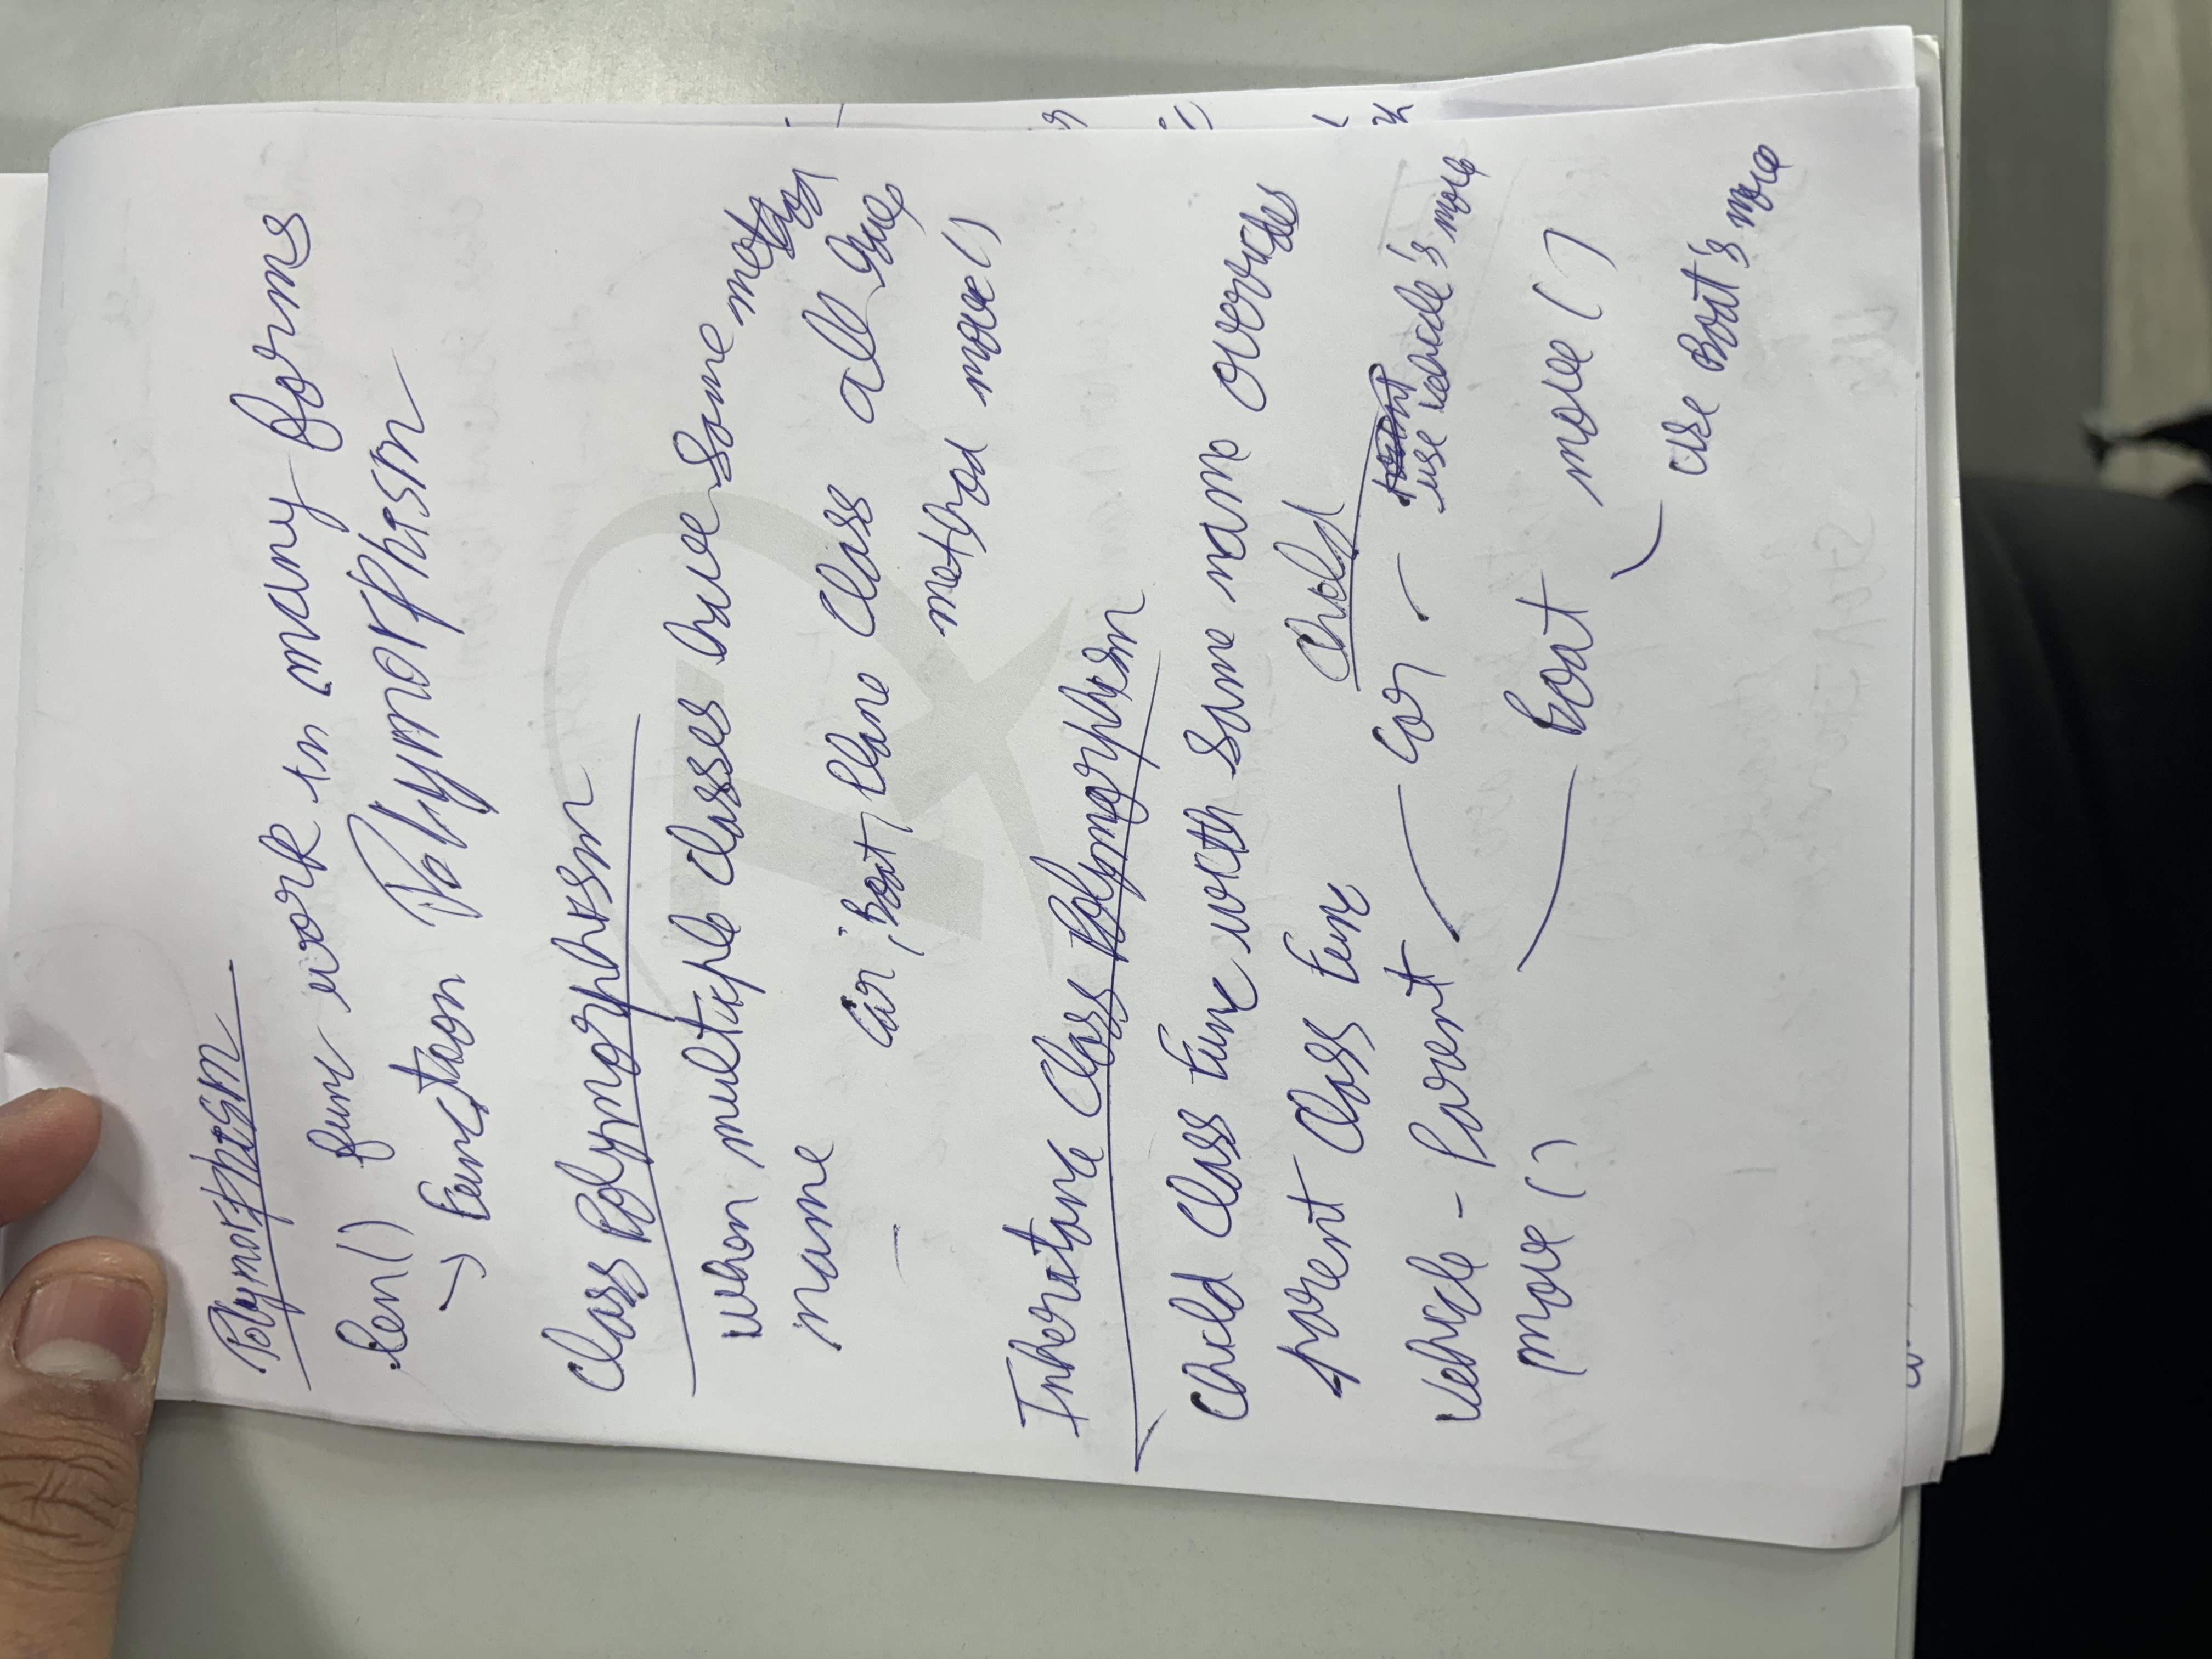 Polymorphism
len() func work in many forms
→ Function Polymorphism
Class Polymorphism
when multiple classes have same method
name
- Car, Boat, Plane Class all have
method move()
Inheritance Class Polymorphism
Child Class Func with same name overrides
parent Class Func
Child
Vehicle - Parent - Car - use vehicle's move
move() - Boat move()
use Boat's move